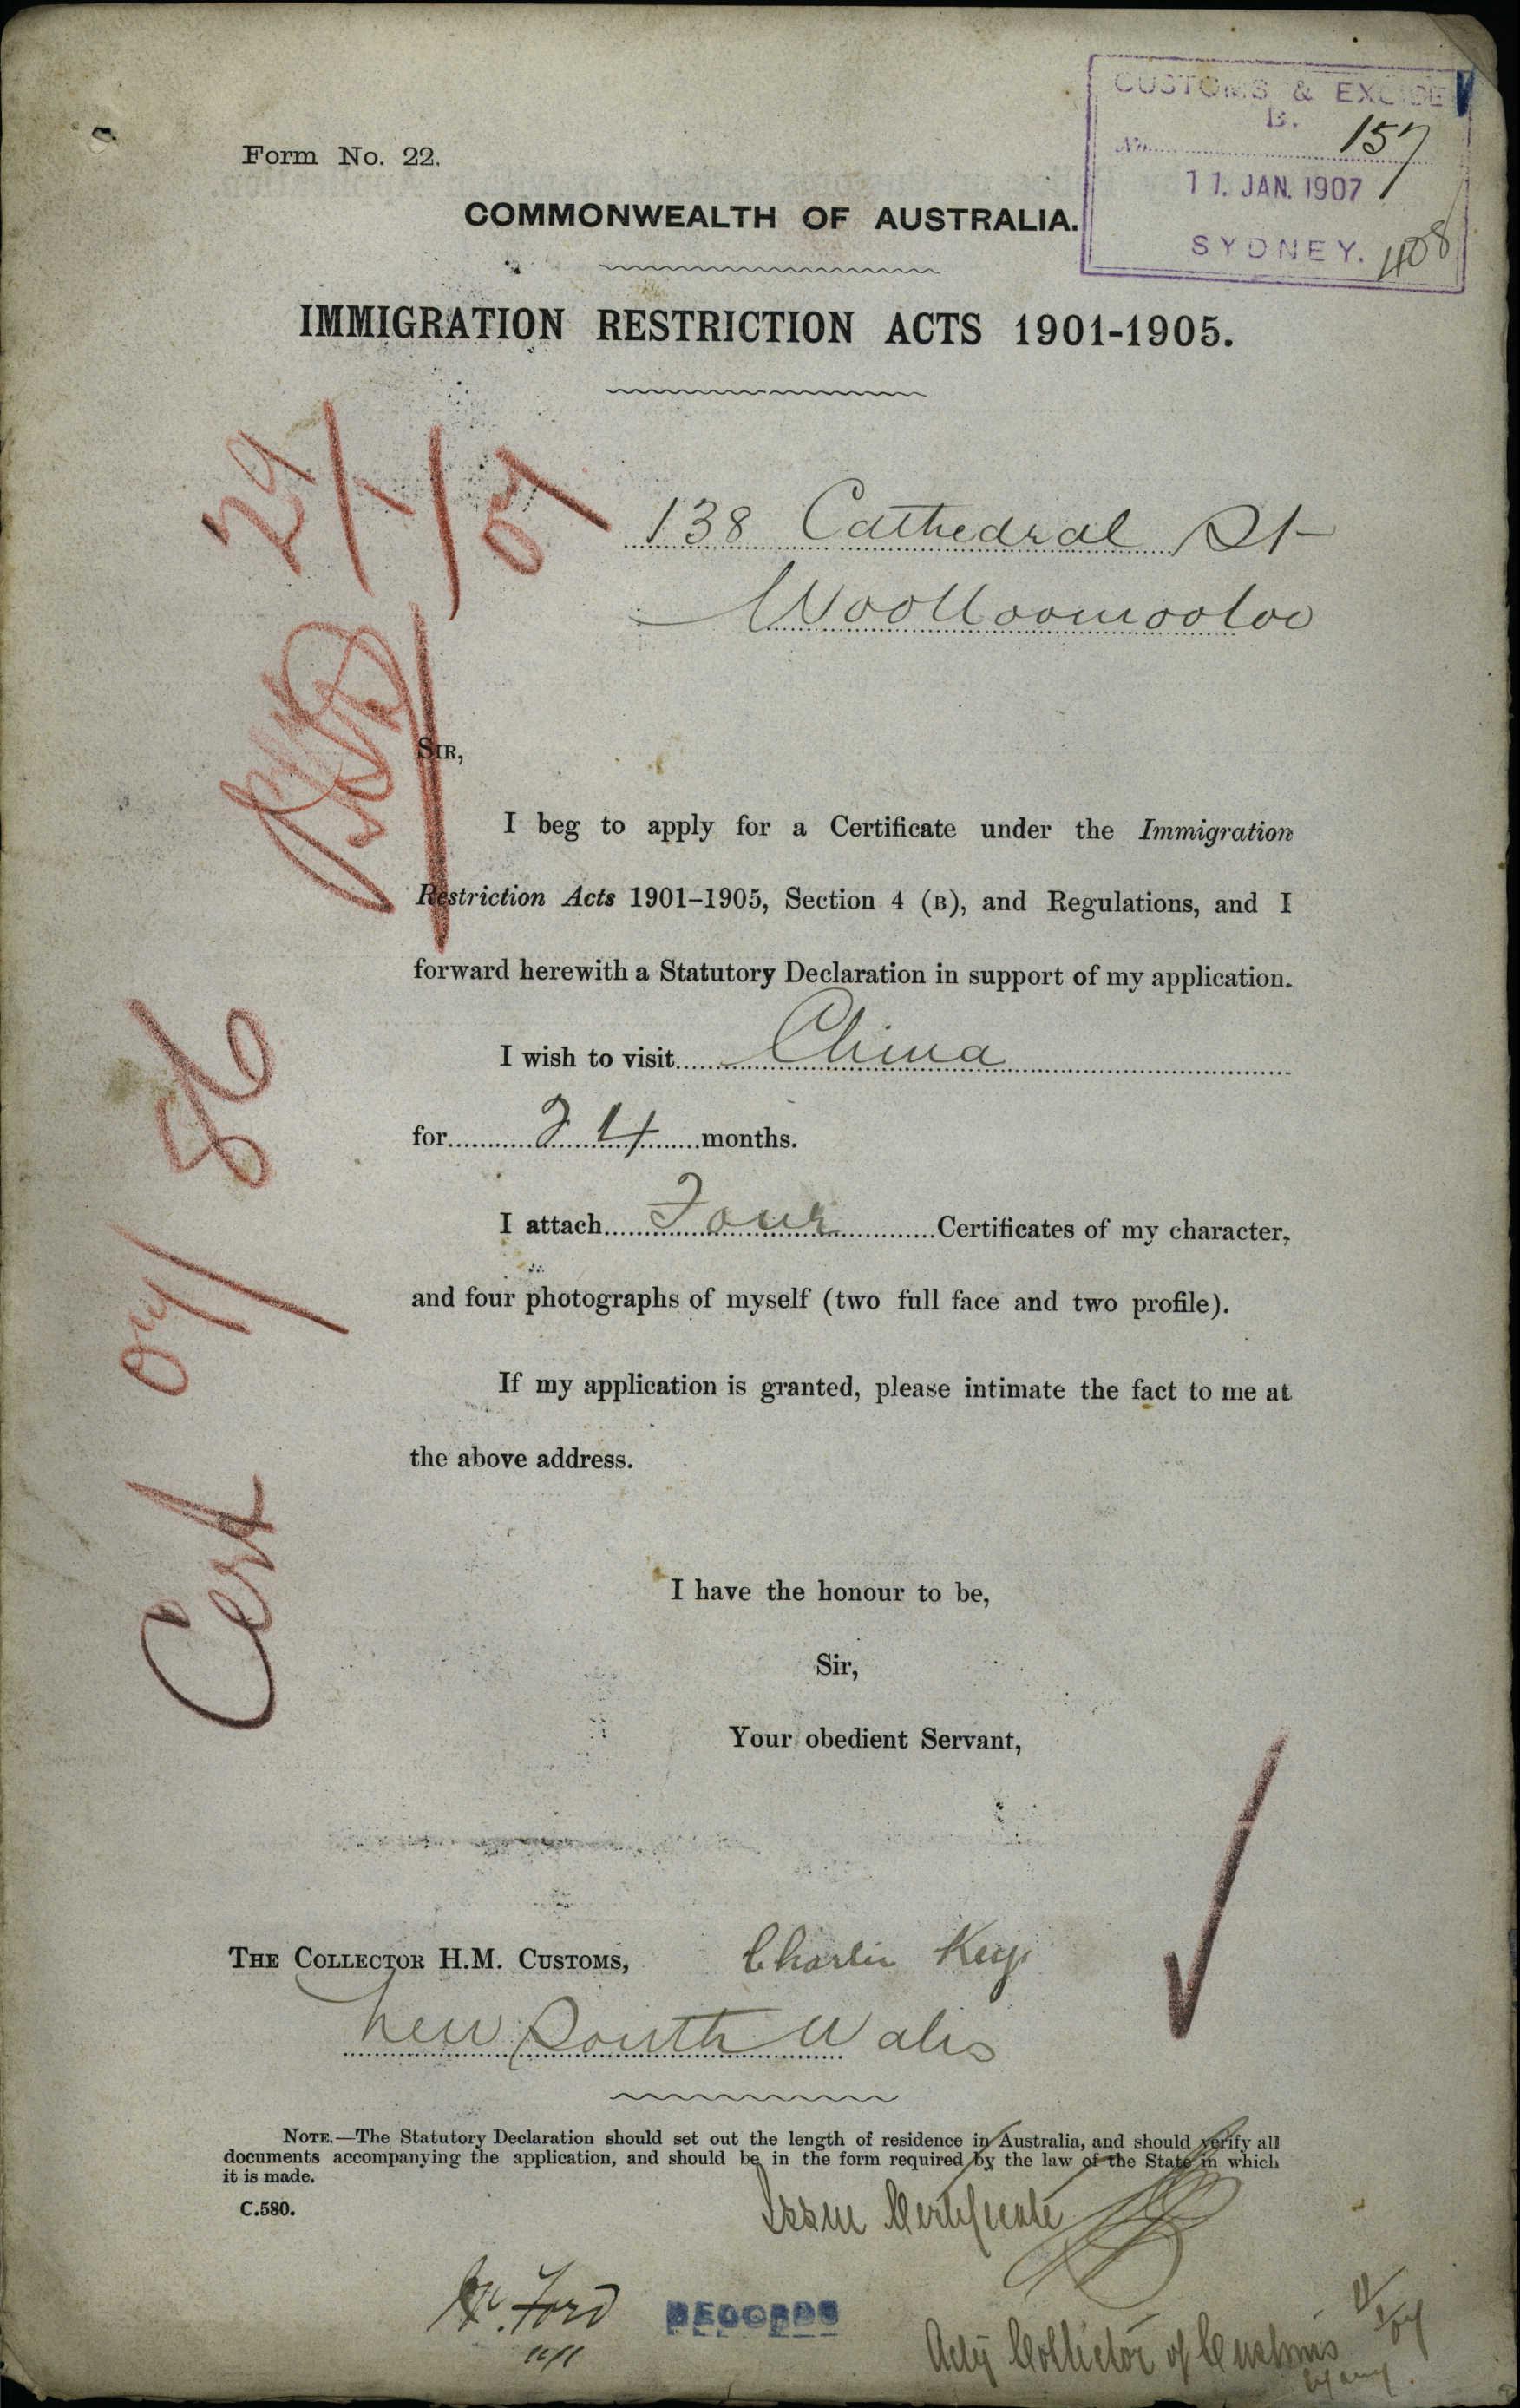 CUSTOMS & EXCISE
B.
No. 157
11. JAN. 1907
SYDNEY. 408
Form No. 22.
COMMONWEALTH OF AUSTRALIA.
IMMIGRATION RESTRICTION ACTS 1901-1905.
29/1/07
138 Cathedral St
Woolloomooloo
SIR,
I beg to apply for a Certificate under the Immigration
Restriction Acts 1901-1905, Section 4 (B), and Regulations, and I
forward herewith a Statutory Declaration in support of my application.
I wish to visit China
for 24 months.
I attach Four Certificates of my character,
and four photographs of myself (two full face and two profile).
If my application is granted, please intimate the fact to me at
the above address.
Cert 07/86
I have the honour to be,
Sir,
Your obedient Servant,
THE COLLECTOR H.M. CUSTOMS, Charlie Key
New South Wales
NOTE.—The Statutory Declaration should set out the length of residence in Australia, and should verify all
documents accompanying the application, and should be in the form required by the law of the State in which
it is made.
C.580.
Issue Certificate
Mr. Ford
11/1
RECORDS
Actg Collector of Customs